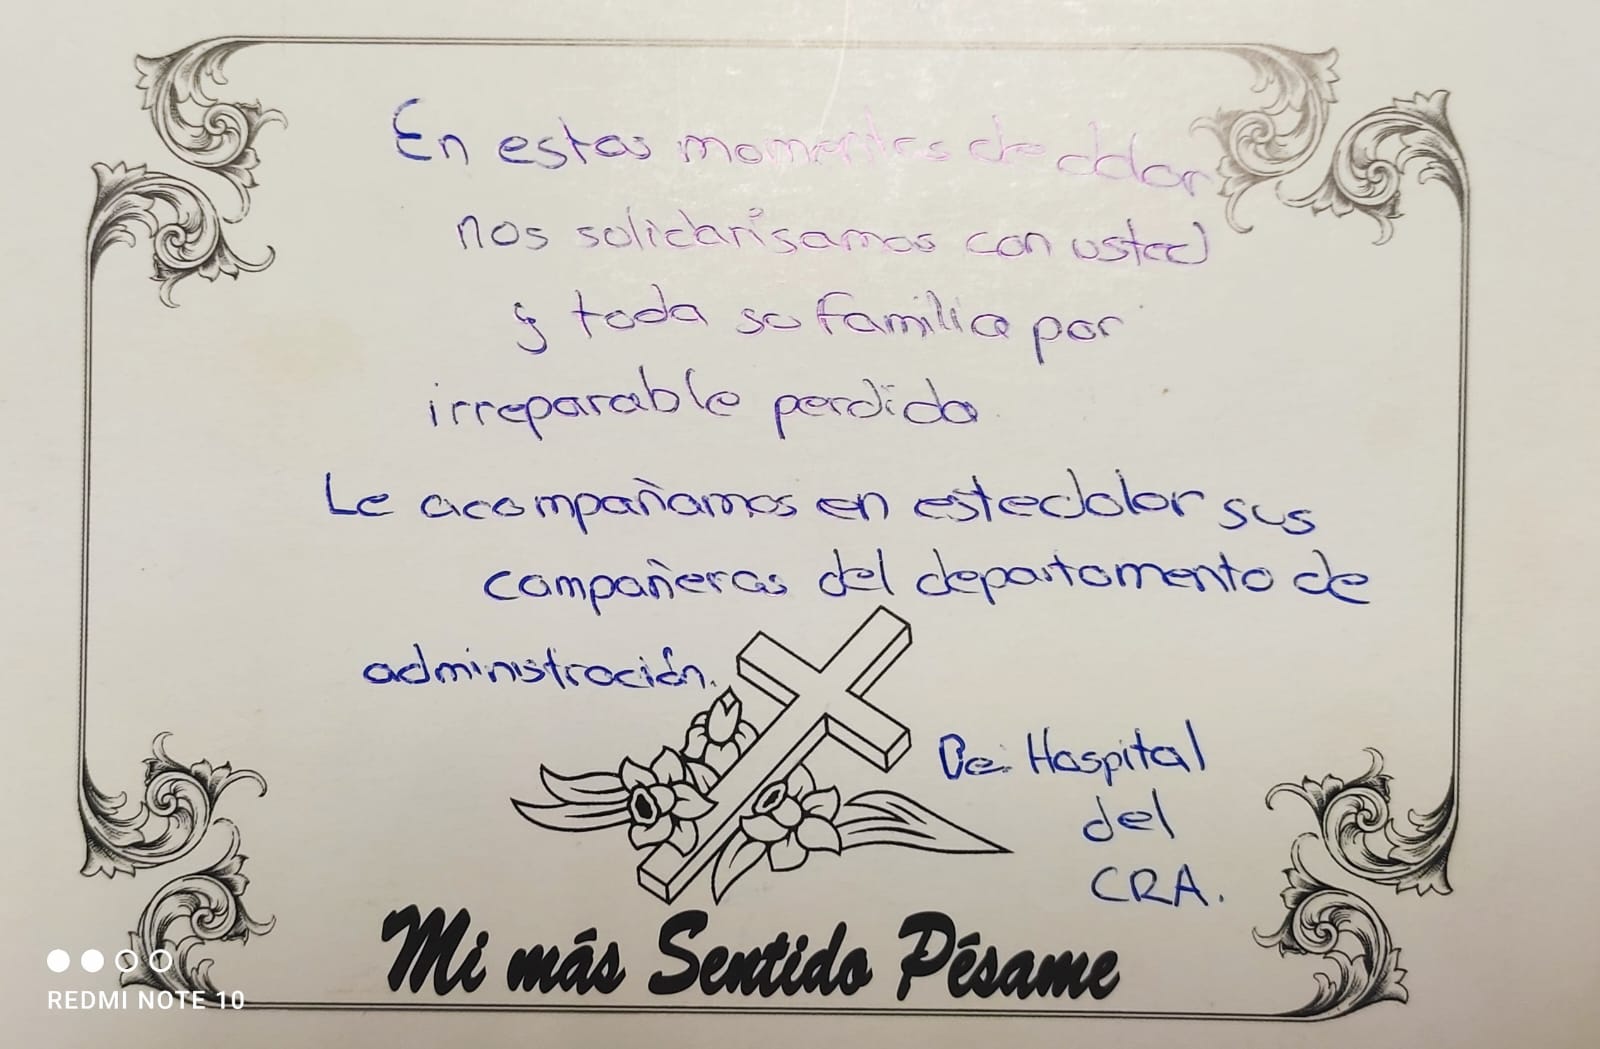 En estos momentos de dolor
nos solidarisamos con usted
y toda su familia por
irreparable perdida
Le acompañamos en este dolor sus
compañeras del departamento de
administración.
De: Hospital
del
CRA.
Mi más Sentido Pésame
REDMI NOTE 10